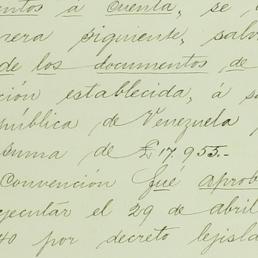 entos á cuenta, se
nera siguiente, salv
de los documentos de
ción establecida, á s
pública de Venezuela
suma de £17.955.-
Convención fué aprob
ejecutar el 29 de abril
40 por decreto lejisla